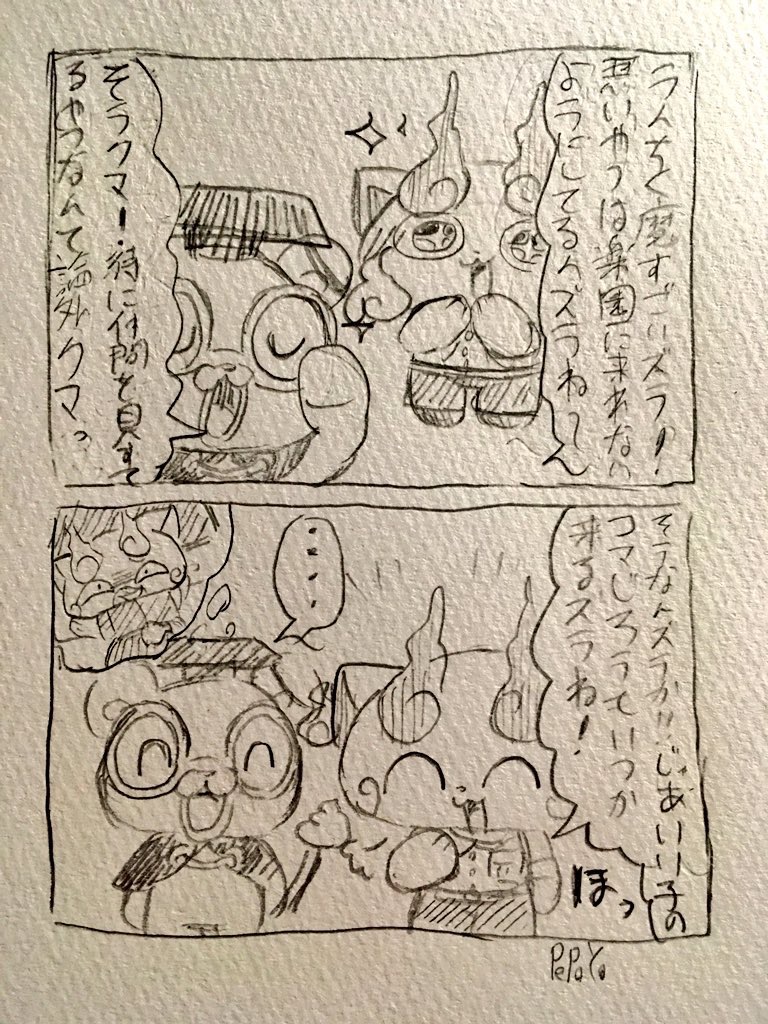 うんちく魔すごいズラ!
悪いやつは楽園に来れない
ようにしてるんズラね〜ん
そうクマー・特に仲間を見すて
るやつなんて論外クマっ
そうなんズラか!!じゃあいい子の
コマじろうていつか
来るズラね!
・・・・
ほっ
PePaYo